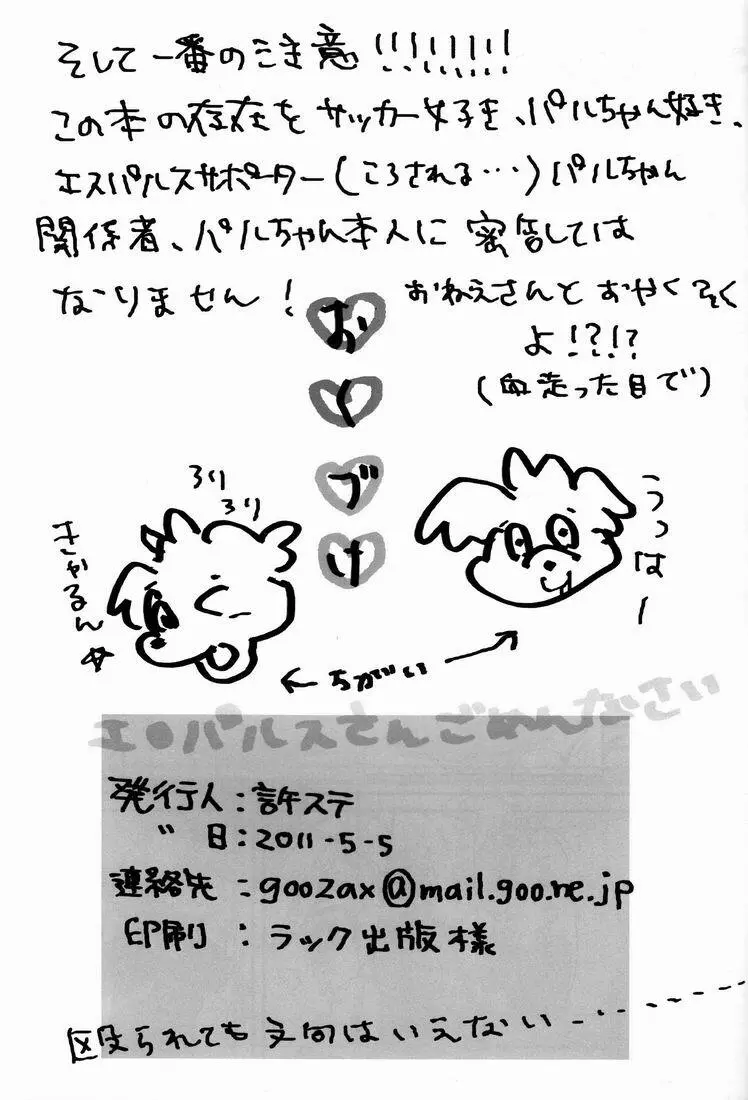 そして一番のご注意!!!!!!!!
この本の存在をサッカー好き、パルちゃん好き、
エスパルスサポーター(ころされる…)パルちゃん
関係者、パルちゃん本人に密告しては
なりません!
おねえさんとおやくそく
よ!?!?
(血走った目で)
おくづけ
ろり
ろり
きゃるん☆
うっはー
←ちがい→
エ●パルスさんごめんなさい
発行人:許ステ
〃日:2011-5-5
連絡先:goozax@mail.goo.ne.jp
印刷:ラック出版様
殴られても文句はいえない……